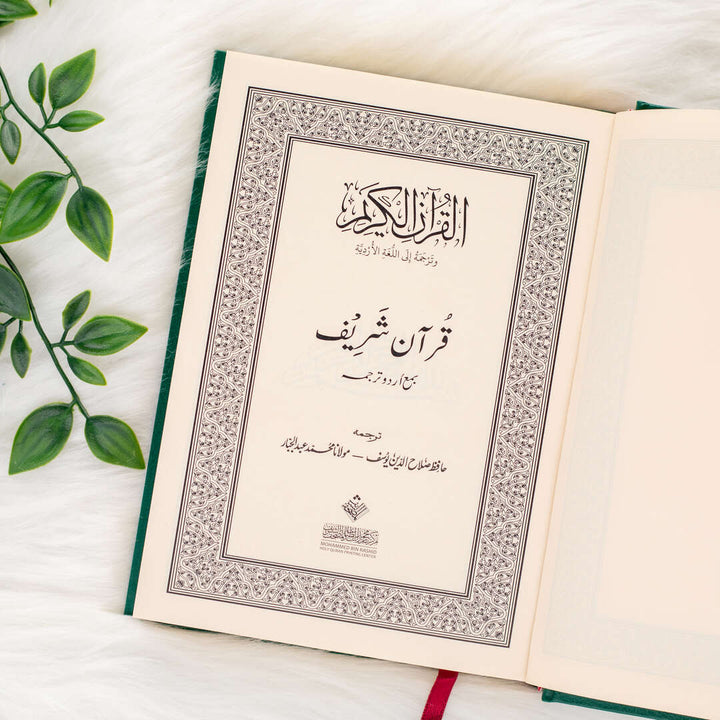 القُرآن الكَرِيم
وَتَرْجَمَةُ إِلَى اللُّغَةِ الأُرْدِيَّةِ
قُرآن شَرِیْف
بمع اُردو ترجمہ
ترجمہ
حافظ صلاح الدین یوسف — مولانا محمد عبدالجبار
MOHAMMED BIN RASHID
HOLY QURAN PRINTING CENTER